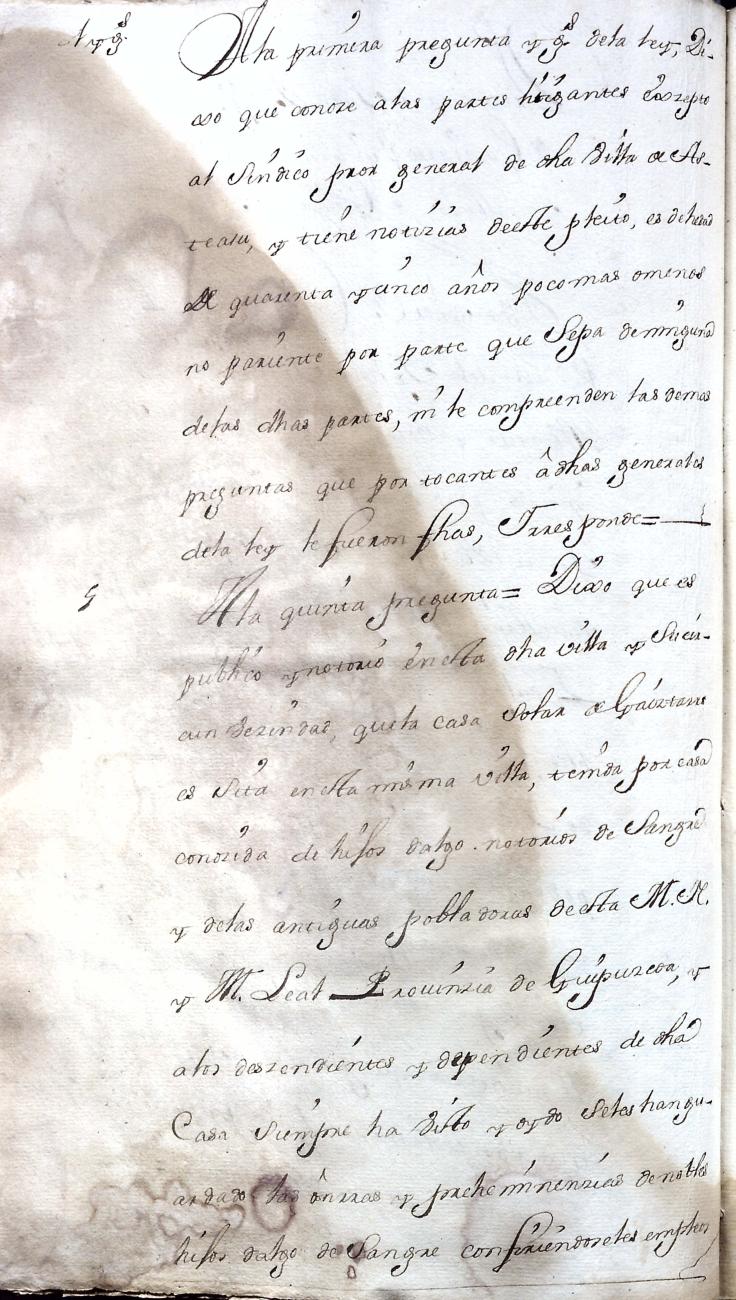 1 y g.s
A la primera pregunta y g.s de la ley, Di-
xo que conoze a las partes litigantes exzepto
al Sindico pror general de dha Villa de As-
teasu, y tiene notizias de este pleito, es de hedad
de quarenta y cinco años poco mas o menos
no pariente por parte que Sepa de ninguna
de las dhas partes, ni le compreenden las demas
preguntas que por tocantes â dhas generales
de la ley le fueron fhas, Y rresponde=
5
A la quinta pregunta= Dixo que es
publico y notorio en esta dha villa y Su cir-
cun Vezindad, que la casa Solar de
es Sita en esta misma villa, tenida por casa
conozida de hijos dalgo notorios de Sangre
y de las antiguas pobladoras de esta M. N.
y M. Leal Provinzia de Guipuzcoa, y
a los deszendientes y dependientes de dha
Casa Siempre ha visto y oydo Seles han gu-
ardado las onrras y preheminenzias de nobles
hijos dalgo de Sangre confiriendoseles empleos